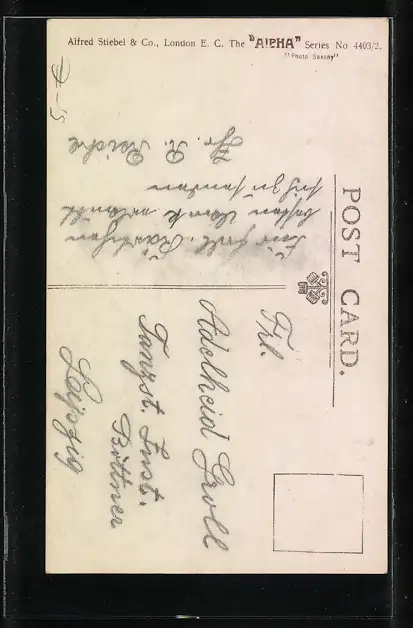 Alfred Stiebel & Co., London E. C. The "AlPHA" Series No 4403/2.
"Photo Saxony"
POST CARD.
Für frdl.
besten Dank erlaubt
sich zu senden
Hr. R. Reiche
Frl.
Adelheid Groll
Tanzst. Inst.
Büttner
Leipzig